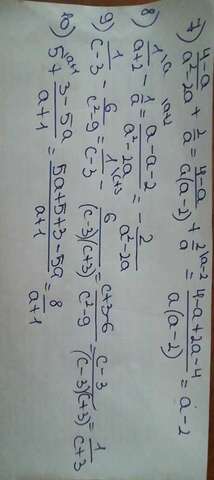 7) (4-a)/(a²-2a) + 2/a = (4-a)/(a(a-2)) + 2\a-2/a = (4-a+2a-4)/(a(a-2)) = a-2
8) 1\a/(a+2) - 1\a+2/a = (a-a-2)/(a²-2a) = - 2/(a²-2a)
9) 1/(c-3) - 6/(c²-9) = 1\c+3/(c-3) - 6/((c-3)(c+3)) = (c+3-6)/(c²-9) = (c-3)/((c-3)(c+3)) = 1/(c+3)
10) 5\a+1 + (3-5a)/(a+1) = (5a+5+3-5a)/(a+1) = 8/(a+1)